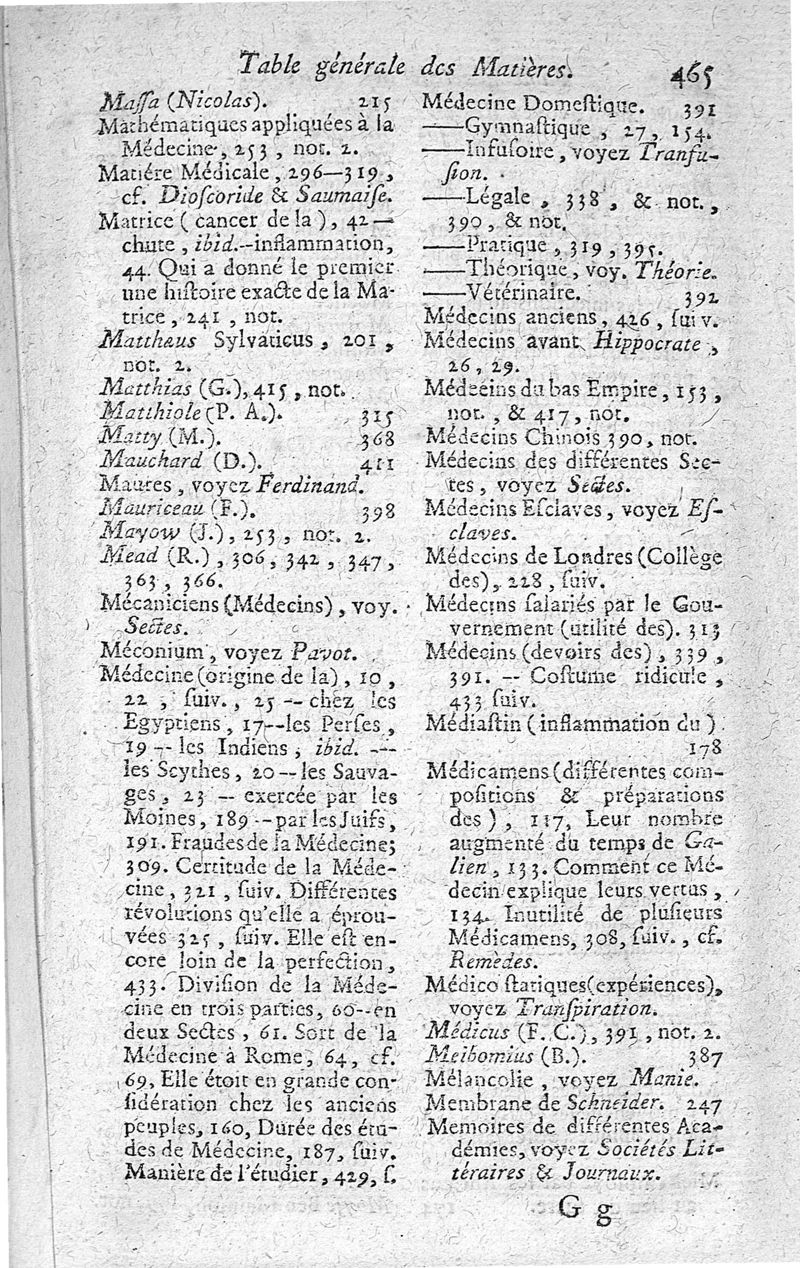 Table générale des Matières. 465
Massa (Nicolas). 215
Mathématiques appliquées à la
Médecine, 253, not. 2.
Matiére Médicale, 296—319,
cf. Dioscoride & Saumaise.
Matrice (cancer de la), 42—
chute, ibid.--inflammation,
44. Qui a donné le premier
une histoire exacte de la Ma-
trice, 241, not.
Matthæus Sylvaticus, 201,
not. 2.
Matthias (G.), 415, not.
Matthiole (P. A.). 315
Matty (M.). 368
Mauchard (D.). 411
Maures, voyez Ferdinand.
Mauriceau (F.). 398
Mayow (J.), 253, not. 2.
Mead (R.), 306, 342, 347,
363, 366.
Mécaniciens (Médecins), voy.
Sectes.
Méconium, voyez Pavot.
Médecine (origine de la), 10,
22, suiv., 25 -- chez les
Egyptiens, 17--les Perses,
19 -- les Indiens, ibid. ---
les Scythes, 20 -- les Sauva-
ges, 23 -- exercée par les
Moines, 189 -- par les Juifs,
191. Fraudes de la Médecine;
309. Certitude de la Méde-
cine, 321, suiv. Différentes
révolutions qu'elle a éprou-
vées 325, suiv. Elle est en-
core loin de la perfection,
433. Division de la Méde-
cine en trois parties, 60--en
deux Sectes, 61. Sort de la
Médecine à Rome, 64, cf.
69, Elle étoit en grande con-
sidération chez les anciens
peuples, 160, Durée des étu-
des de Médecine, 187, suiv.
Manière de l'étudier, 429, s.
Médecine Domestique. 391
——Gymnastique, 27, 154.
——Infusoire, voyez Tranfu-
sion.
——Légale, 338, & not.,
390, & not.
——Pratique, 319, 395.
——Théorique, voy. Théorie.
——Vétérinaire. 392
Médecins anciens, 426, suiv.
Médecins avant Hippocrate,
26, 29.
Médecins du bas Empire, 153,
not., & 417, not.
Médecins Chinois 390, not.
Médecins des différentes Sec-
tes, voyez Sectes.
Médecins Esclaves, voyez Es-
claves.
Médecins de Londres (Collège
des), 228, suiv.
Médecins salariés par le Gou-
vernement (utilité des). 313
Médecins (devoirs des), 339,
391. -- Costume ridicule,
433 suiv.
Médiastin (inflammation du)
178
Médicamens (différentes com-
positions & préparations
des), 117, Leur nombre
augmenté du temps de Ga-
lien, 133. Comment ce Mé-
decin explique leurs vertus,
134. Inutilité de plusieurs
Médicamens, 308, suiv., cf.
Remèdes.
Médico statiques (expériences),
voyez Transpiration.
Médicus (F. C.), 391, not. 2.
Meibomius (B.). 387
Mélancolie, voyez Manie.
Membrane de Schneider. 247
Memoires de différentes Aca-
démies, voyez Sociétés Lit-
téraires & Journaux.
G g